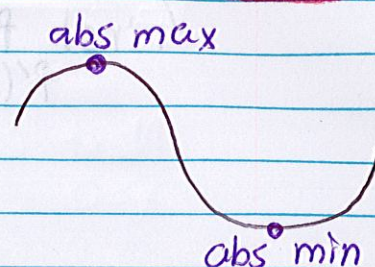 abs max
abs min